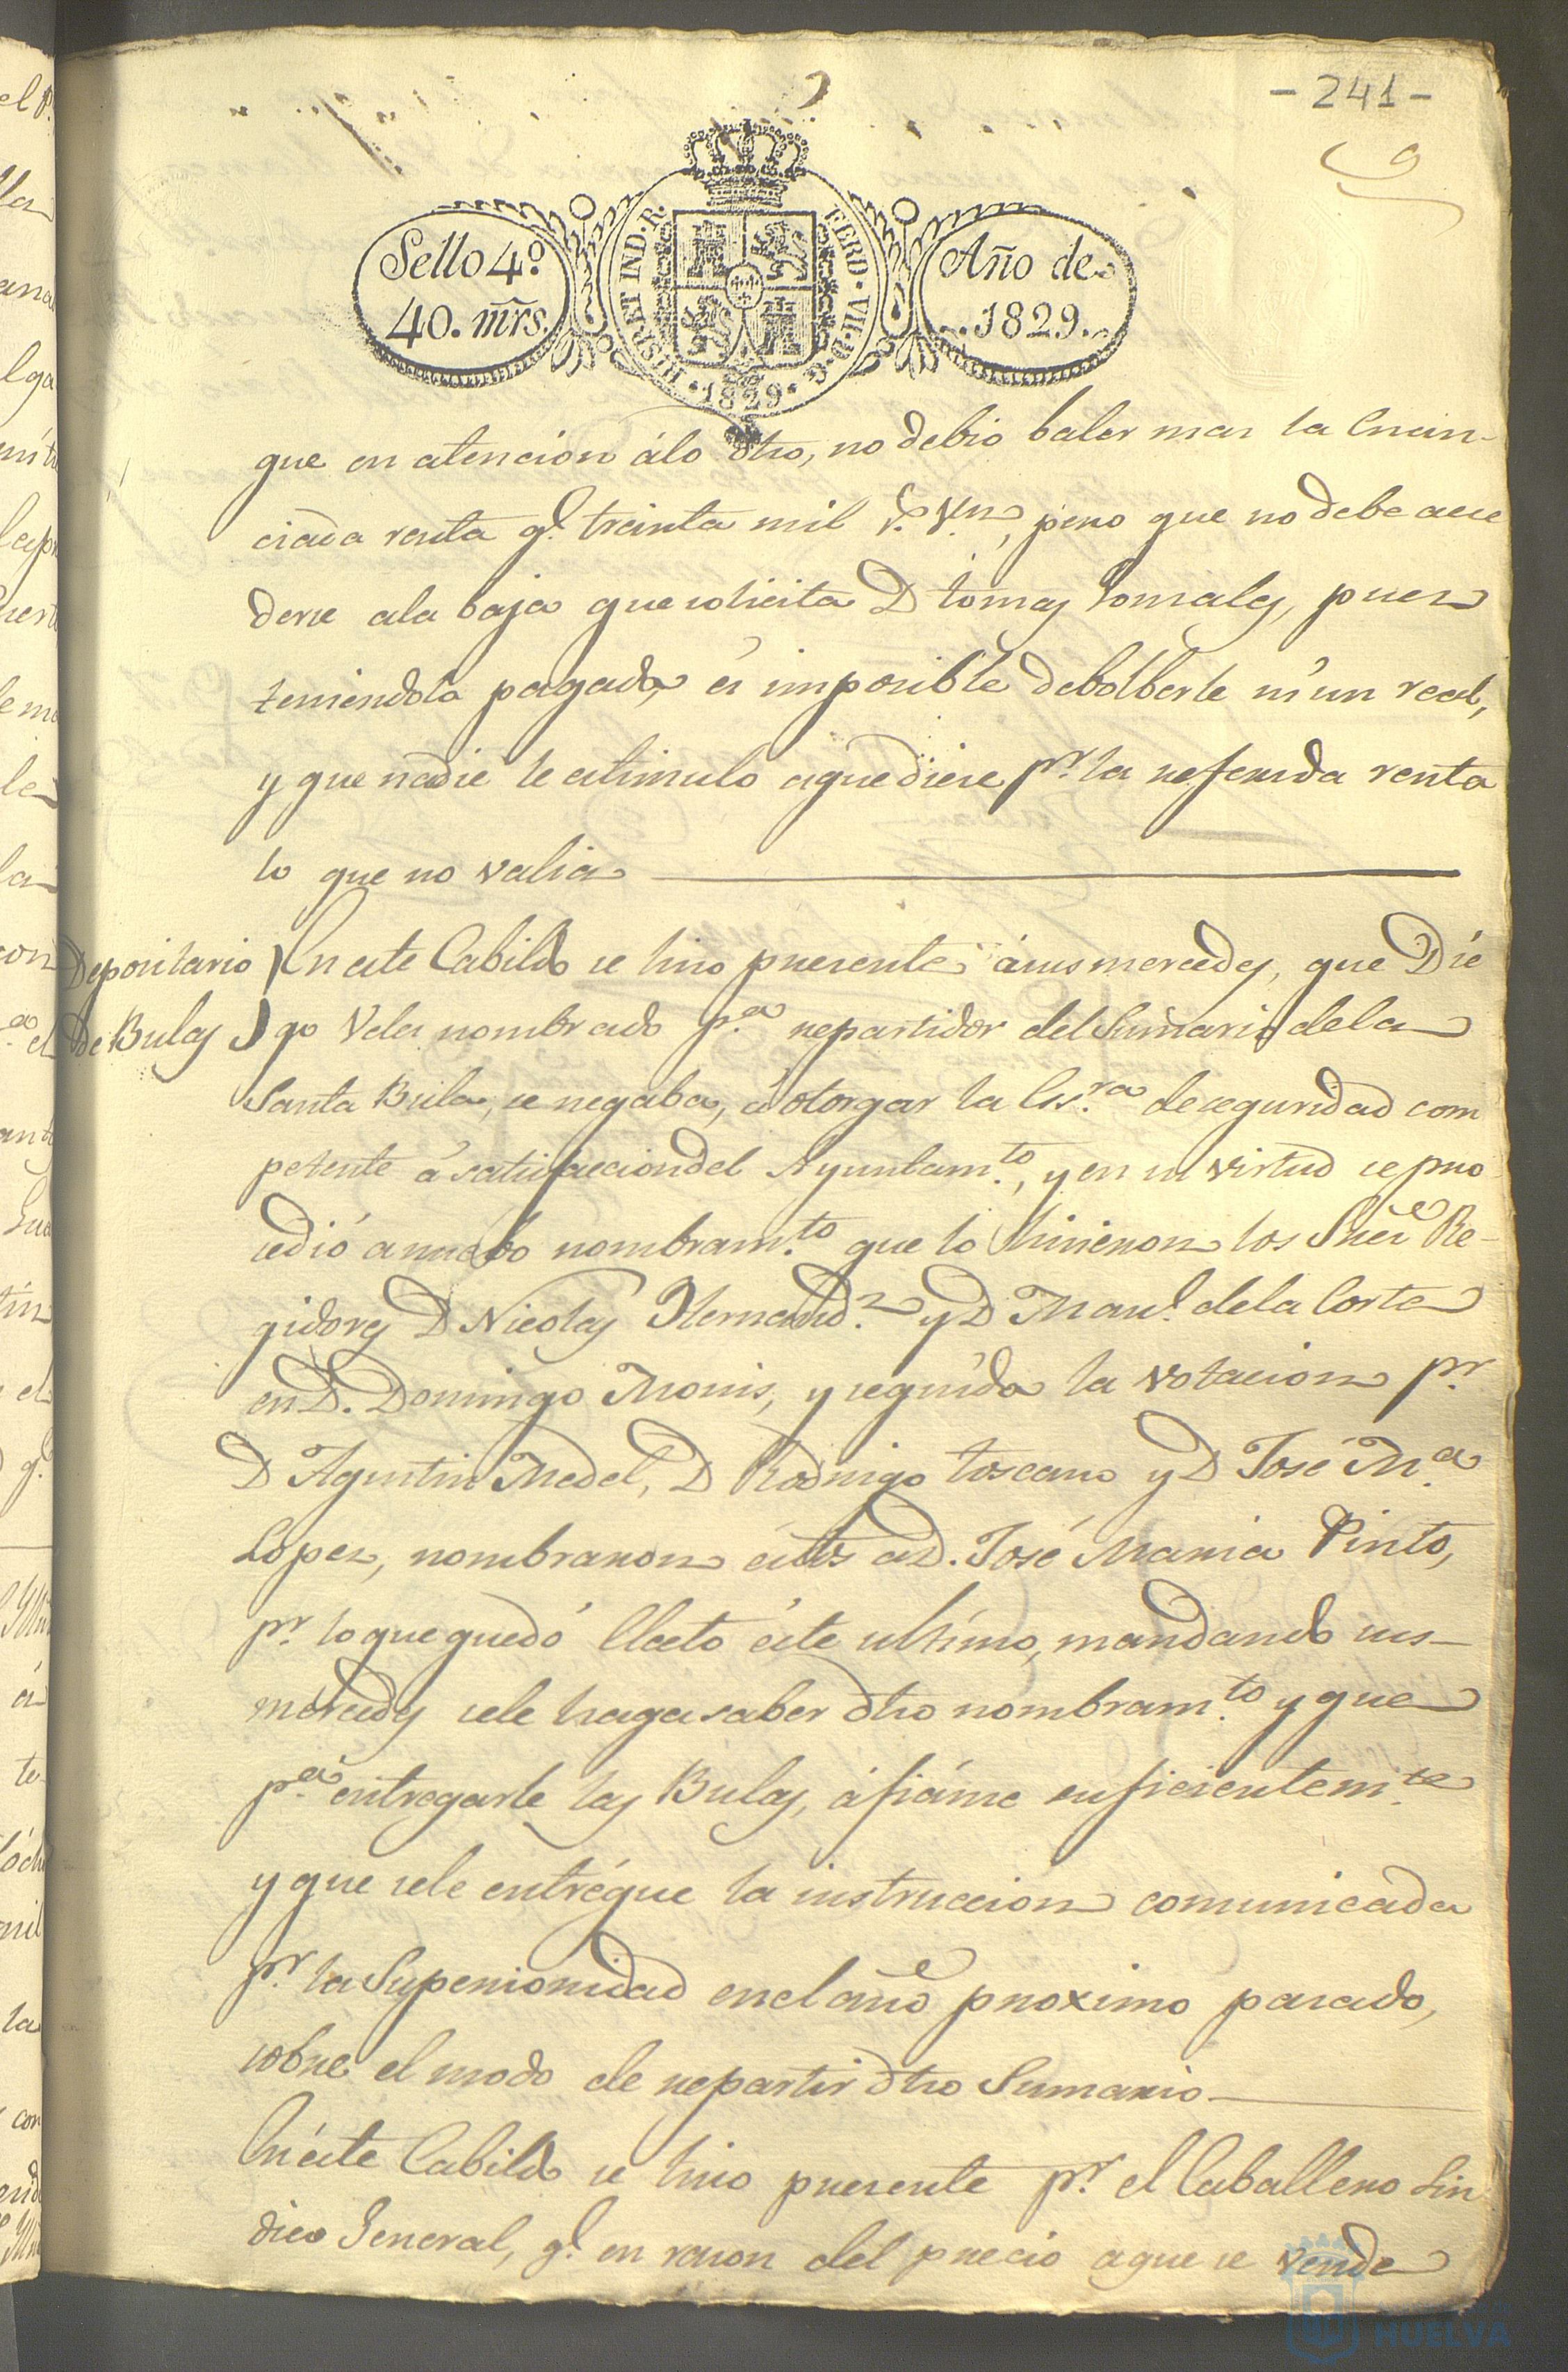 - 241 -
9
Sello 4º
40. mrs.
HISP. ET IND. R.
FERD. VII. D. G.
1829
Año de
1829.
que en atencion álo dho, no debió baler mas la Enun-
ciada renta q.e treinta mil r.s v.n, pero que no debe acce
derse ala baja que solicita D Tomas Gonsales, pues
teniendola pagada, és imposible debolberle ni un real,
y que nadie le estimulo aque diese p.r la referida renta
lo que no valia
Depositario
de Bulas
En este Cabildo se hiso presente ásus mercedes, que Die
go Veles nombrado p.a repartidor del Sumario dela
Santa Bula, se negaba, á otorgar la Es.ra de seguridad com
petente á satisfaccion del Ayuntam.to, y en su virtud se pro
cedió a nuebo nombram.to que lo hisieron los Sres Re-
gidores D Nicolas Hernand.z y D Man.l dela Corte
en D. Domingo Monis, y seguida la votacion p.r
D Agustin Medel, D Rodrigo Toscano y D José M.a
Lopez, nombraron éstos a D. José Maria Pinto,
p.r lo que quedó Elcto éste ultimo, mandando sus-
mercedes sele haga saber dho nombram.to y que
p.a entregarle las Bulas, afiánse suficientem.te
y que sele entrégue la instruccion comunicada
p.r la Superioridad en el año proximo pasado,
sobre el modo de repartir dho Sumario
En éste Cabildo se hiso presente p.r el Caballero Sin
dico General, q.e en rason del precio aque se vende
HUELVA